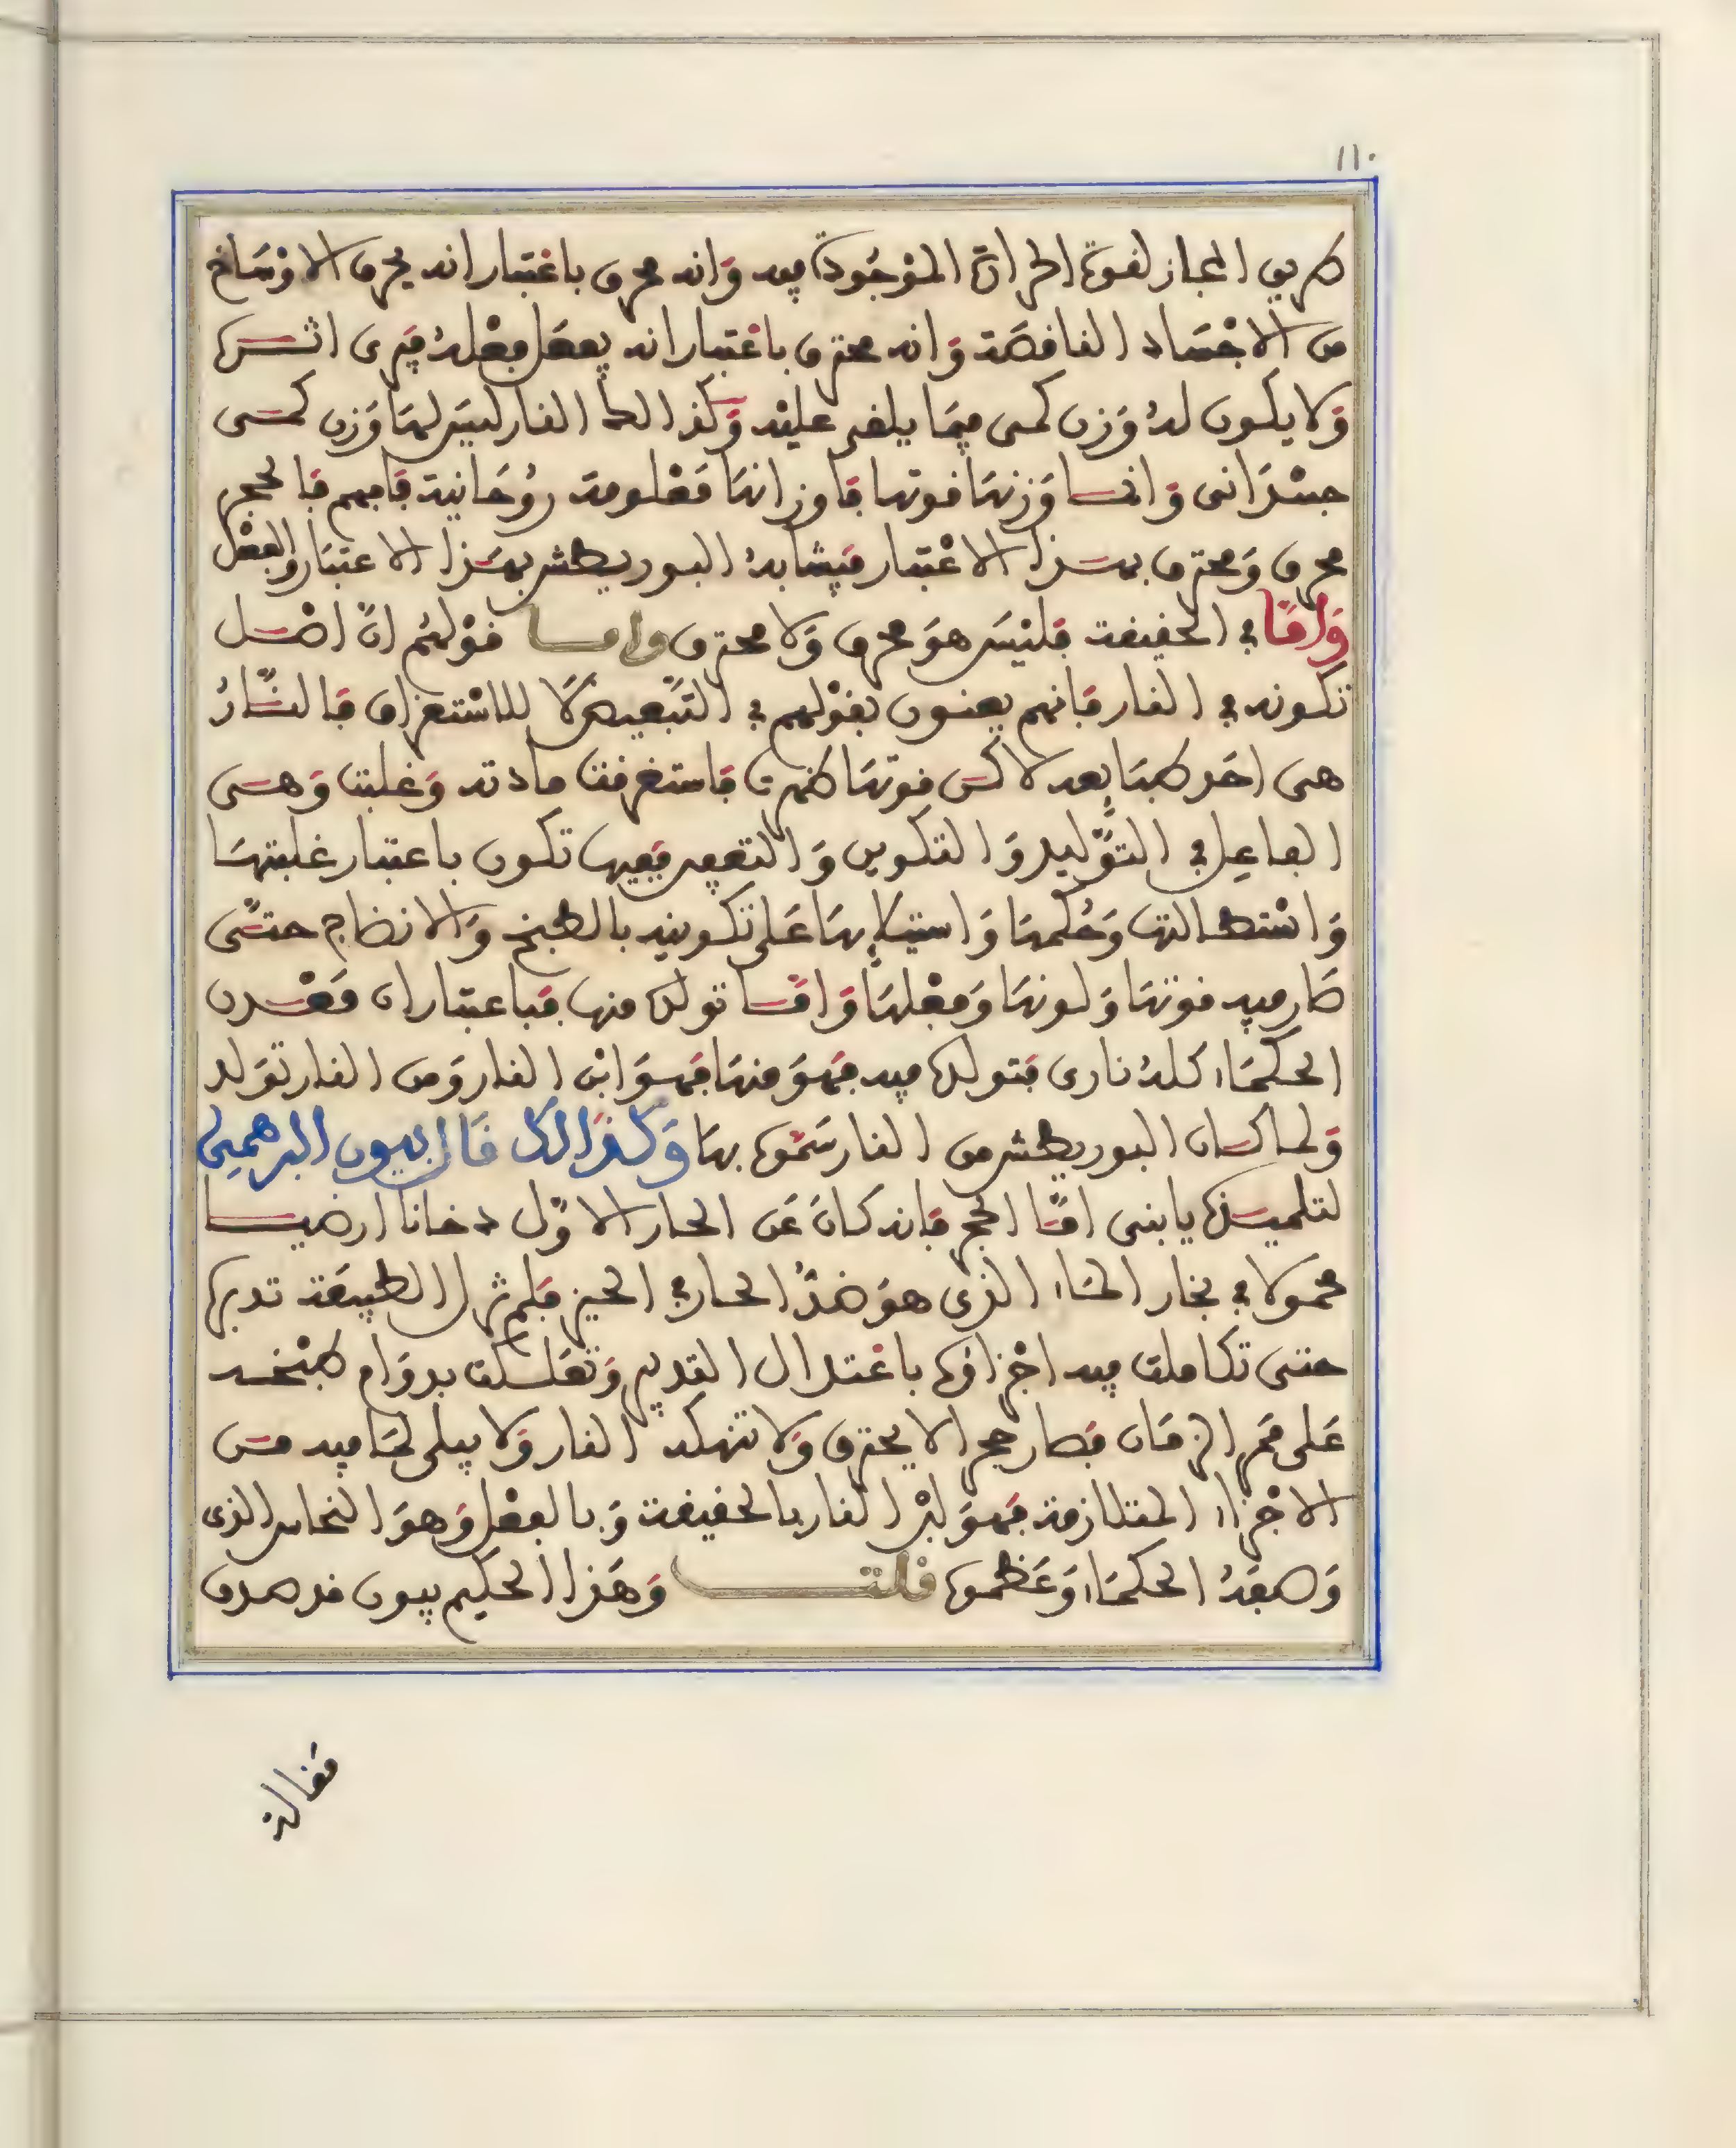 ١١٠
طريق المجاز لقوة الحرارة الموجودة فيه وَانه محرق باعْتبار انه يحرق الاوْسَاخ
من الاجْسَاد الناقصَة وَانه محترق باعْتبار انه يفعَل فعْلهُ فيَرى اثره
وَلا يكون لهُ وَزن كمى فيمَا يلقى عليْه وَكذالك النار ليسَ لهَا وَزن كمى
جسْدَانى وَانما وَزنهَا قوتها فاوزانهَا مَعْلومة روُحَانية فافهم فالحجر
محرق وَمحترق بهذا الاعْتبار فيشَابهُ البوريطش بهَذا الاعتبار والفعْل
وَامَّا في الحقيقة فليْسَ هوَ محرق وَلا محترق واما قوْلهُم انَّ اصْل
تكونه في النار فانهم يعنون بقوْلهم في التَّبعيض لَا للاسْتغراق فالنَّارُ
هى احَد طبَايعه لاكن قوتهَا ظهرت فاستغرقت مادته وَغلبت وَهى
الفاعِل في التَّوْليد وَالتكوين وَالتعفين ففيها تكون باعتبار غلبتهَا
وَاسْتطالتها وَحُكمهَا وَاستيلَايهَا عَلى تكوينه بالطبخ وَالانضاج حتَّى
صَار فيه قوتهَا وَلونهَا وَفعْلهَا وَامَّا تولده منها فباعتبار ان مَعْدن
الحكمَاء كلهُ نارى فتولده فيه فهوَ منهَا فهوَ ابْن النار وَمن النار توَلد
وَلما كان البوريطش من النار سَمَّوه بهَا وَكذَالك قَال بيون البرهمى
لتلميذه يا بنى امَّا الحجر فانه كانَ عَن الحار الاوَّل دخانا ارضيا
محمولا في بخار المَاء الذى هوَ ضدُّ الحار في الحيز فلم تزل الطبيعَة تدبره
حتى تكاملت فيه اجْزاؤه باعْتدال التدبير وَتعَلكت بدوَام طبْخه
عَلى مَمر الزمَان فصار حجر الا يحترق وَلا تنهكه النار وَلا يبلى لمَا فيه من
الاجْزاء المتلازمة فهوَ لبْن النار بالحقيقة وَبالفعْل وَهوَ النحاس الذى
وَصفهُ الحكمَاء وَعَظموه قلت وَهَذا الحكيم بيون قد صدق
مقالة